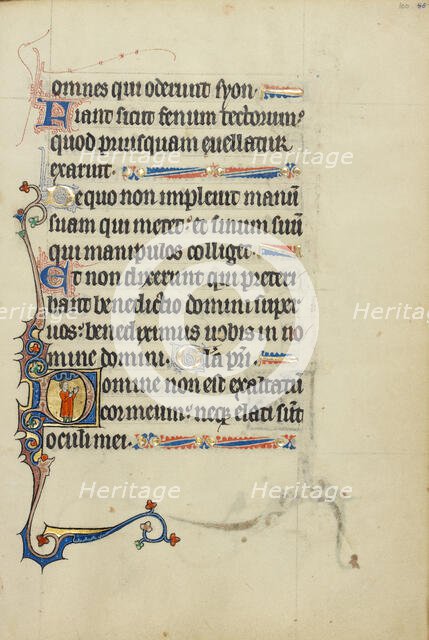 100 66
omnes qui oderunt syon.
Fiant sicut fenum tectorum
quod priusquam euellatur
exaruit.
De quo non impleuit manū
suam qui metet: et sinum suū
qui manipulos colliget.
Et non dixerunt qui preteri
bant benedictio domini super
uos: benediximus uobis in no
mine domini. Gl̄a pr̄i.
Domine non est exaltatū
cor meum: neqꝫ elati sūt
oculi mei.
Heritage Heritage
Heritage Heritage
Heritage Heritage